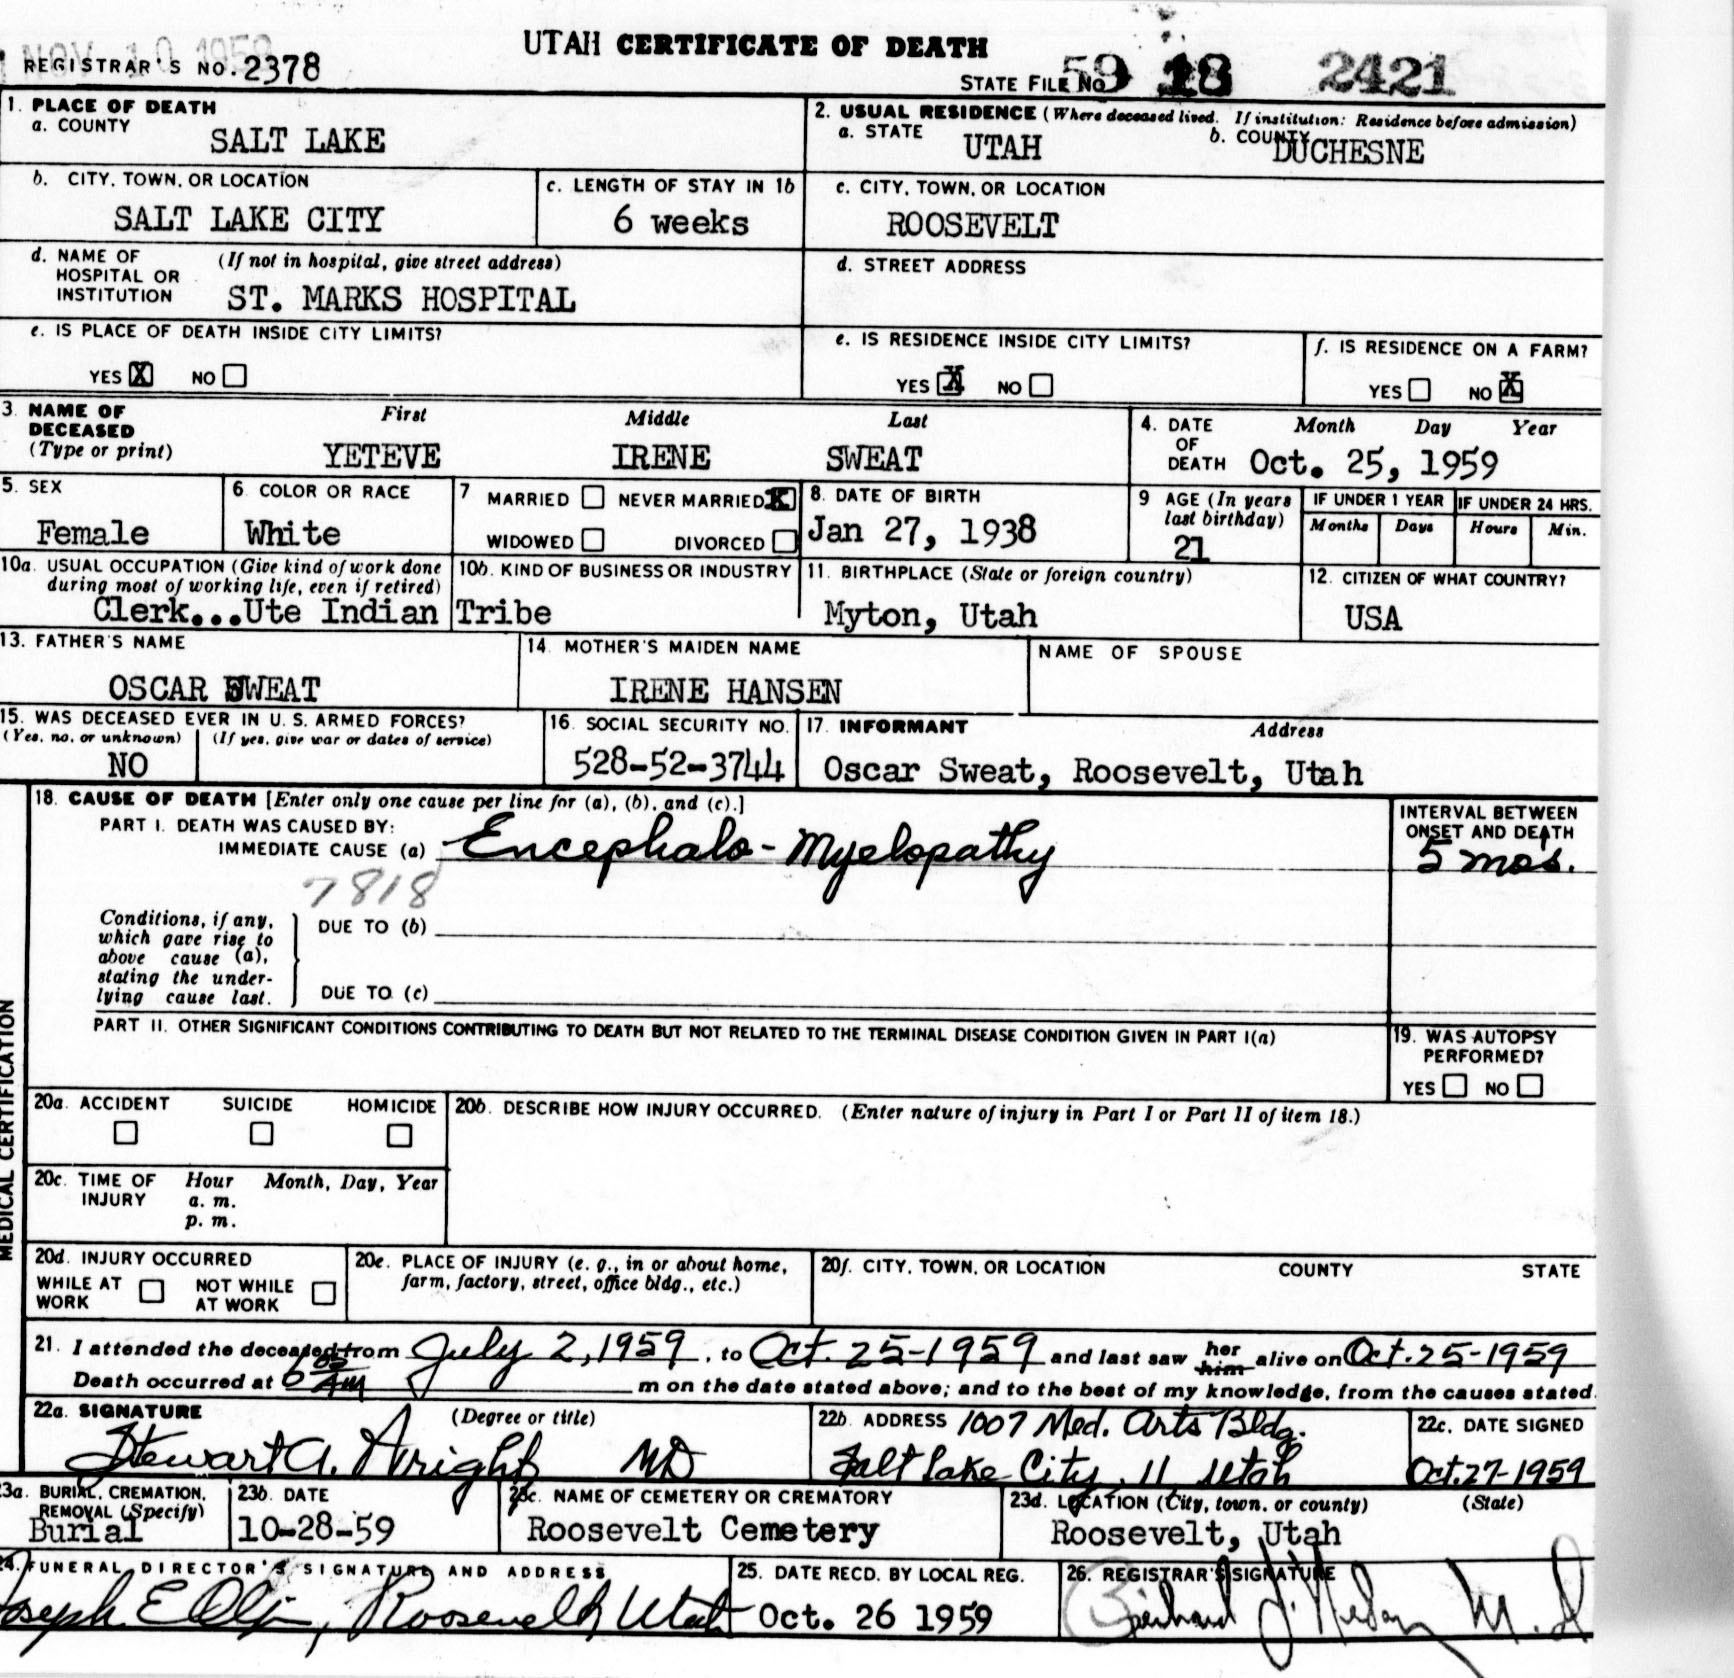 NOV 10 1959
UTAH CERTIFICATE OF DEATH
REGISTRAR'S NO. 2378
STATE FILE NO. 59 18 2421
1. PLACE OF DEATH
a. COUNTY
SALT LAKE
2. USUAL RESIDENCE (Where deceased lived. If institution: Residence before admission)
a. STATE UTAH b. COUNTY DUCHESNE
b. CITY, TOWN, OR LOCATION
SALT LAKE CITY
c. LENGTH OF STAY IN 1b
6 weeks
c. CITY, TOWN, OR LOCATION
ROOSEVELT
d. NAME OF HOSPITAL OR INSTITUTION (If not in hospital, give street address)
ST. MARKS HOSPITAL
d. STREET ADDRESS
e. IS PLACE OF DEATH INSIDE CITY LIMITS?
YES X NO
e. IS RESIDENCE INSIDE CITY LIMITS?
YES X NO
f. IS RESIDENCE ON A FARM?
YES NO X
3. NAME OF DECEASED (Type or print)
First Middle Last
YETEVE IRENE SWEAT
4. DATE OF DEATH Month Day Year
Oct. 25, 1959
5. SEX
Female
6. COLOR OR RACE
White
7 MARRIED NEVER MARRIED X
WIDOWED DIVORCED
8. DATE OF BIRTH
Jan 27, 1938
9 AGE (In years last birthday)
21
IF UNDER 1 YEAR IF UNDER 24 HRS.
Months Days Hours Min.
10a. USUAL OCCUPATION (Give kind of work done during most of working life, even if retired)
10b. KIND OF BUSINESS OR INDUSTRY
Clerk...Ute Indian Tribe
11. BIRTHPLACE (State or foreign country)
Myton, Utah
12. CITIZEN OF WHAT COUNTRY?
USA
13. FATHER'S NAME
OSCAR SWEAT
14. MOTHER'S MAIDEN NAME
IRENE HANSEN
NAME OF SPOUSE
15. WAS DECEASED EVER IN U. S. ARMED FORCES?
(Yes, no, or unknown) (If yes, give war or dates of service)
NO
16. SOCIAL SECURITY NO.
528-52-3744
17. INFORMANT Address
Oscar Sweat, Roosevelt, Utah
MEDICAL CERTIFICATION
18. CAUSE OF DEATH [Enter only one cause per line for (a), (b), and (c).]
PART I. DEATH WAS CAUSED BY:
IMMEDIATE CAUSE (a) Encephalo-Myelopathy
7818
INTERVAL BETWEEN ONSET AND DEATH
5 mos.
Conditions, if any, which gave rise to above cause (a), stating the underlying cause last.
DUE TO (b)
DUE TO (c)
PART II. OTHER SIGNIFICANT CONDITIONS CONTRIBUTING TO DEATH BUT NOT RELATED TO THE TERMINAL DISEASE CONDITION GIVEN IN PART I(a)
19. WAS AUTOPSY PERFORMED?
YES NO
20a. ACCIDENT SUICIDE HOMICIDE
20b. DESCRIBE HOW INJURY OCCURRED. (Enter nature of injury in Part I or Part II of item 18.)
20c. TIME OF INJURY Hour Month, Day, Year
a. m.
p. m.
20d. INJURY OCCURRED
WHILE AT WORK NOT WHILE AT WORK
20e. PLACE OF INJURY (e. g., in or about home, farm, factory, street, office bldg., etc.)
20f. CITY, TOWN, OR LOCATION COUNTY STATE
21. I attended the deceased from July 2, 1959, to Oct. 25-1959 and last saw her him alive on Oct. 25-1959
Death occurred at 6 AM m on the date stated above; and to the best of my knowledge, from the causes stated.
22a. SIGNATURE (Degree or title)
Stewart A. Wright MD
22b. ADDRESS 1007 Med. Arts Bldg.
Salt Lake City, 11 Utah
22c. DATE SIGNED
Oct. 27-1959
23a. BURIAL, CREMATION, REMOVAL (Specify)
Burial
23b. DATE
10-28-59
23c. NAME OF CEMETERY OR CREMATORY
Roosevelt Cemetery
23d. LOCATION (City, town, or county) (State)
Roosevelt, Utah
24. FUNERAL DIRECTOR'S SIGNATURE AND ADDRESS
Joseph E Olpin, Roosevelt Utah
25. DATE RECD. BY LOCAL REG.
Oct. 26 1959
26. REGISTRAR'S SIGNATURE
M.D